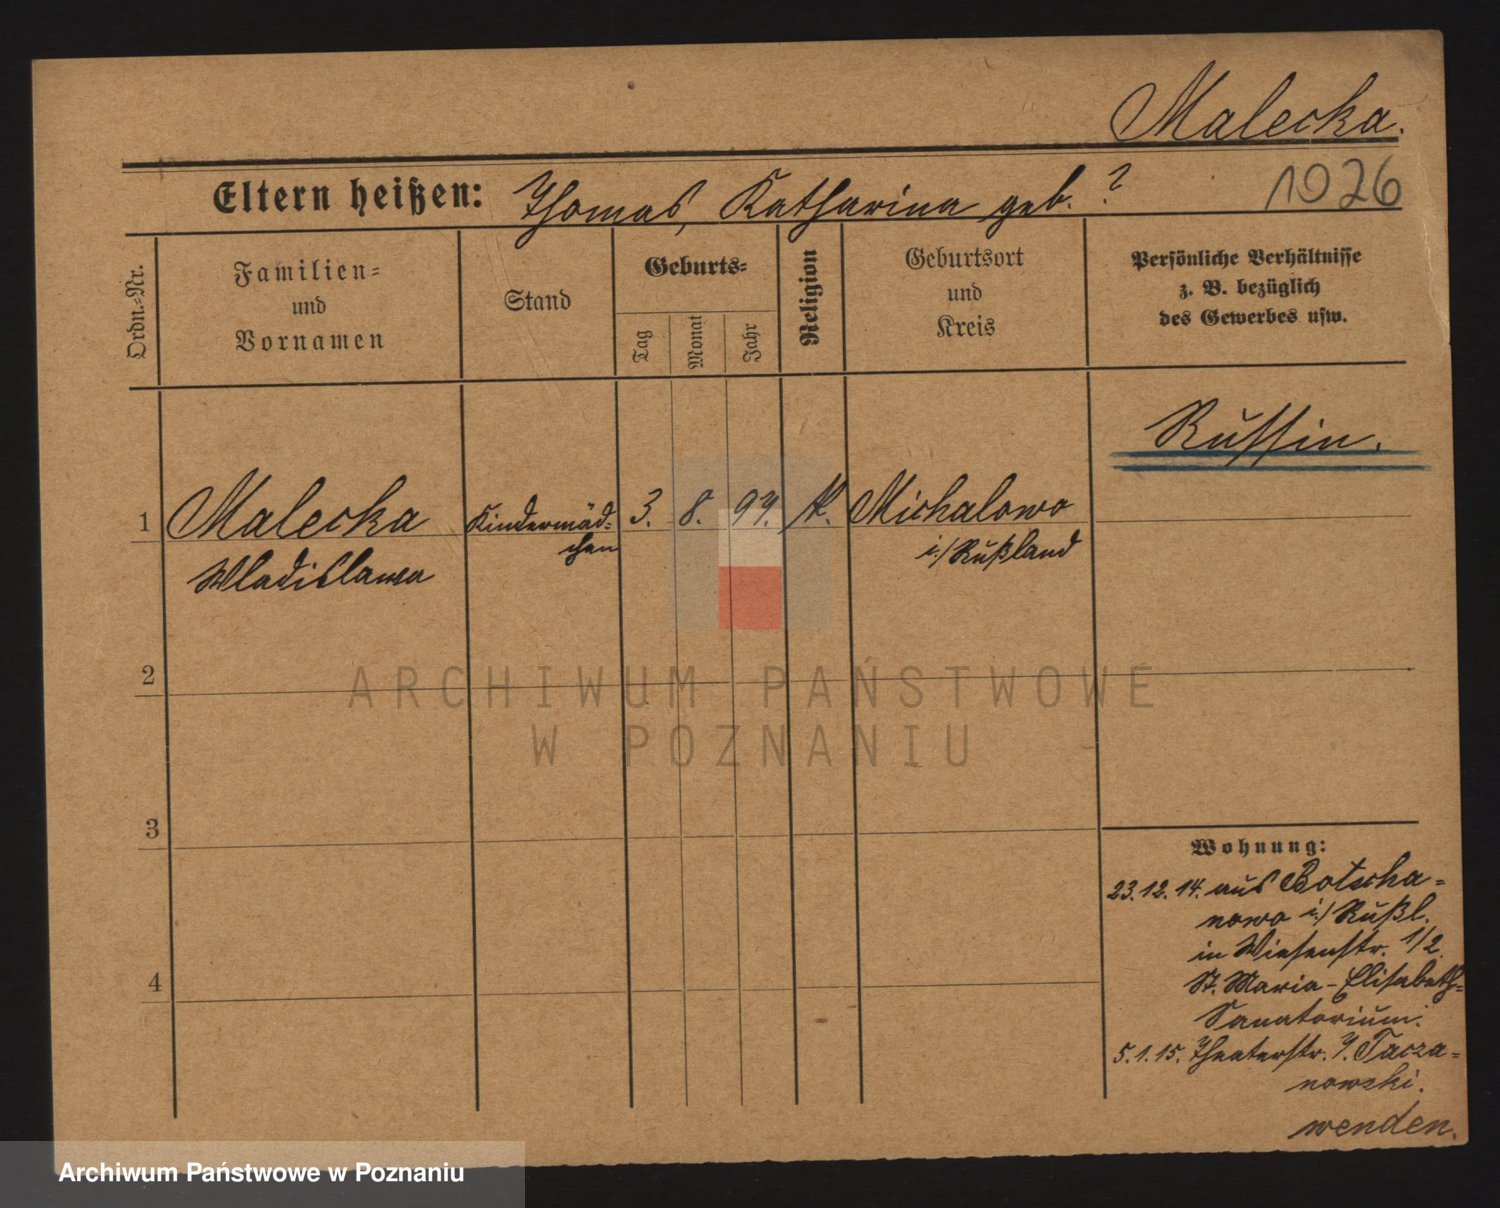 Malecka.
Eltern heißen: Thomas, Katharina geb. ?
1926
Ordn.-Nr.
Familien-
und
Vornamen
Stand
Geburts-
Tag
Monat
Jahr
Religion
Geburtsort
und
Kreis
Persönliche Verhältnisse
z. B. bezüglich
des Gewerbes usw.
Russin.
1 Malecka Kindermäd- 3. 8. 94. k. Michalowo
chen i/Rußland
Wladislawa
2
ARCHIWUM PAŃSTWOWE
W POZNANIU
3
Wohnung:
23.12.14. aus Botscha-
nowo i/Rußl.
in Wiesenstr. 1/2.
St. Maria-Elisabeth-
Sanatorium.
5.1.15. Theaterstr. Tacza-
nowski.
4
wenden.
Archiwum Państwowe w Poznaniu